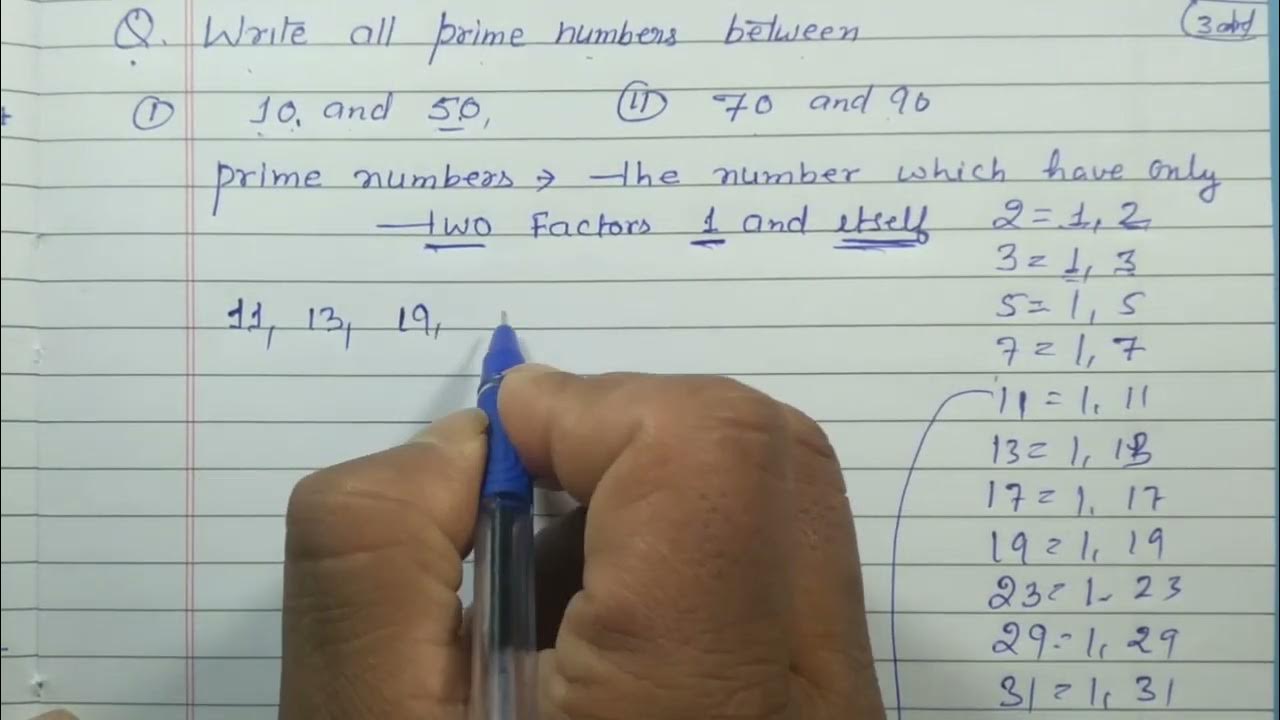 Q. Write all prime numbers between
I 10, and 50, II 70 and 90
prime numbers → the number which have only
two Factors 1 and itself
2 = 1, 2
3 = 1, 3
5 = 1, 5
7 = 1, 7
11 = 1, 11
13 = 1, 13
17 = 1, 17
19 = 1, 19
23 = 1, 23
29 = 1, 29
31 = 1, 31
11, 13, 19,